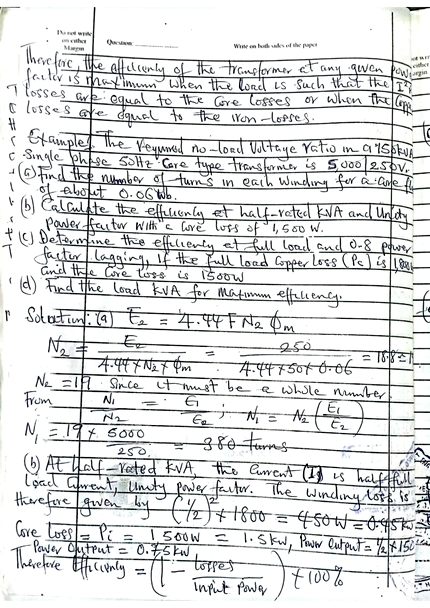 Do not write
on either
Margin
Question
Write on both sides of the paper
Therefore the efficiency of the transformer at any given pow
factor is maximum when the load is such that the I²
losses are equal to the core losses or when the copp
losses are equal to the iron-losses.
Example: The required no-load Voltage ratio in a 150kVA
Single phase 50Hz Core type transformer is 5,000/250V.
(a) Find the number of turns in each winding for a core f
of about 0.06Wb.
(b) Calculate the efficiency at half-rated KVA and Unity
power factor with a core loss of 1,500W.
(c) Determine the efficiency at full load and 0.8 power
factor lagging, if the full load copper loss (Pc) is 1800
and the core loss is 1500W
(d) Find the load KVA for maximum efficiency.
Solution: (a) E₂ = 4.44 F N₂ Φm
N₂ = E₂ / 4.44 × N₂ × Φm = 250 / 4.44 × 50 × 0.06 = 18.8 ≃ 1
N₂ = 19 Since it must be a whole number.
From N₁/N₂ = E₁/E₂ ; N₁ = N₂ (E₁/E₂)
N₁ = 19 × 5000 / 250 = 380 turns
(b) At half-rated KVA, the Current (I) is half full
Load Current, Unity power factor. The winding loss is
therefore given by (1/2)² × 1800 = 450W = 0.45kw
Core Loss = Pi = 1,500W = 1.5kw, Power Output = 1/2 × 150
Power Output = 0.75kw
Therefore Efficiency = (1 - losses / input power) × 100%